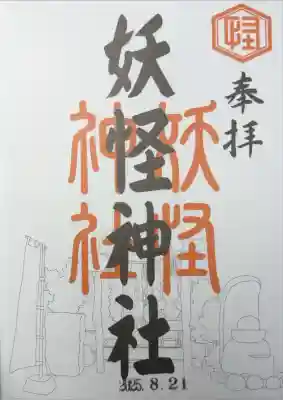 怪
奉拝
妖怪神社
妖怪
神社
2025.8.21